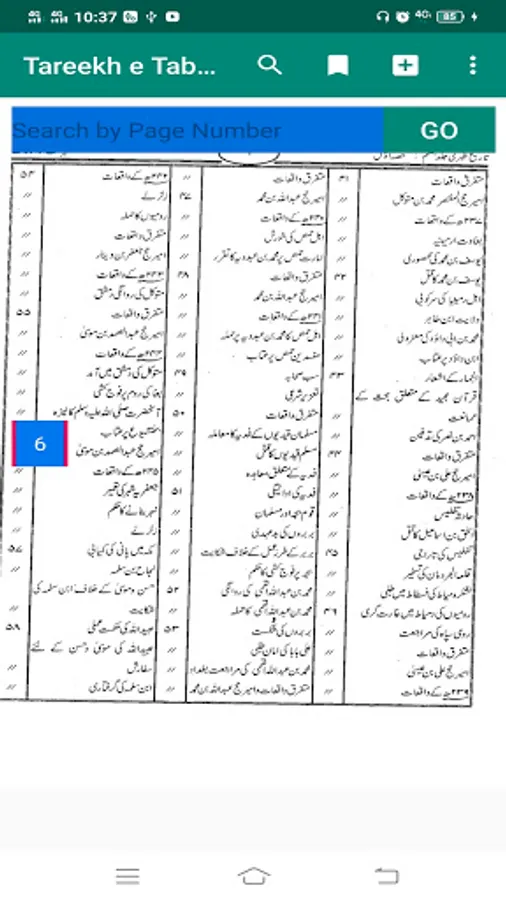 10:37
4G
85
Tareekh e Tab...
Search by Page Number
GO
متفرق واقعات
امیر حج المنتصر محمد بن متوکل
۲۳۷ھ کے واقعات
بغاوت ارمینیہ
یوسف بن محمد کی محصوری
یوسف بن محمد کا قتل
اہل رومیلیا کی سرکوبی
ولایت ابن طاہر
محمد بن ابی داؤد کی معزولی
ابن داؤد پر عتاب
قرآن مجید کے متعلق بحث کی
ممانعت
احمد بن نصر کی تدفین
متفرق واقعات
امیر حج علی بن عیسیٰ
۲۳۸ھ کے واقعات
حادثہ تفلیس
اسحٰق بن اسماعیل کا قتل
تفلیس کی تاراجی
قلعہ الجردمان کی تسخیر
رومیوں کی دمیاط میں غارت گری
رومی سپاہ کی مراجعت
متفرق واقعات
امیر حج علی بن عیسیٰ
۲۳۹ھ کے واقعات
۴۱
۴۲
۴۳
۴۴
۴۵
۴۶
متفرق واقعات
امیر حج عبداللہ بن محمد
۲۴۰ھ کے واقعات
اہل حمص کی شورش
امارت حمص پر محمد بن عبدویہ کا تقرر
متفرق واقعات
امیر حج عبداللہ بن محمد
۲۴۱ھ کے واقعات
اہل حمص کا محمد بن عبدویہ پر حملہ
مفسدین حمص پر عتاب
سب صحابہ
تعزیر شرعی
متفرق واقعات
مسلمان قیدیوں کے فدیہ کا معاملہ
مسلم قیدیوں کا قتل
فدیہ کے متعلق معاہدہ
فدیہ کی ادائیگی
قوم بجہ اور مسلمان
بربروں کی بدعہدی
بربر کے طرز عمل کے خلاف شکایت
بجہ پر فوج کشی کا حکم
محمد بن عبداللہ القمی کی روانگی
محمد بن عبداللہ القمی کا حملہ
بربروں کی شکست
علی بابا کی امان طلبی
محمد بن عبداللہ القمی کی مراجعت بغداد
متفرق واقعات و امیر حج عبداللہ بن محمد
۴۷
۴۸
۴۹
۵۰
۵۱
۵۲
۵۳
۲۴۲ھ کے واقعات
زلزلے
رومیوں کا حملہ
متفرق واقعات
امیر حج جعفر بن دینار
۲۴۳ھ کے واقعات
متوکل کی روانگی دمشق
متفرق واقعات
امیر حج عبدالصمد بن موسیٰ
۲۴۴ھ کے واقعات
متوکل کی دمشق میں آمد
بغا کی روم پر فوج کشی
آنحضرت صلی اللہ علیہ وسلم کا نیزہ
بختیشوع پر عتاب
امیر حج عبدالصمد بن موسیٰ
۲۴۵ھ کے واقعات
جعفریہ شہر کی تعمیر
نہر بنانے کا حکم
زلزلے
مکہ میں پانی کی کمیابی
نجاح بن سلمہ
حسن و موسیٰ کے خلاف ابن سلمہ کی
شکایت
عبیداللہ کی حکمت عملی
عبیداللہ کی موسیٰ و حسن کے لئے
سفارش
ابن سلمہ کی گرفتاری
۵۴
۵۵
۵۷
۵۸
6